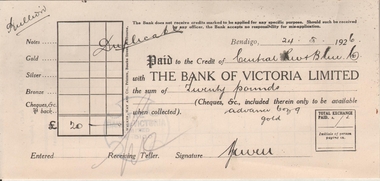 The Bank does not receive credits marked to be applied for any specific purpose. Should such be received
by any officer, the Bank accepts no responsibility for non-compliance.
Duplicate
Bendigo, 24 - 5 - 1926
Notes
Gold
Silver
Bronze
Cheques, &c.
back
£ 20
Paid to the Credit of Central
with THE BANK OF VICTORIA LIMITED
the sum of Twenty pounds
(Cheques, &c., included therein only to be available
when collected). advance
gold
TOTAL EXCHANGE
PAID
Entered Receiving Teller. Signature